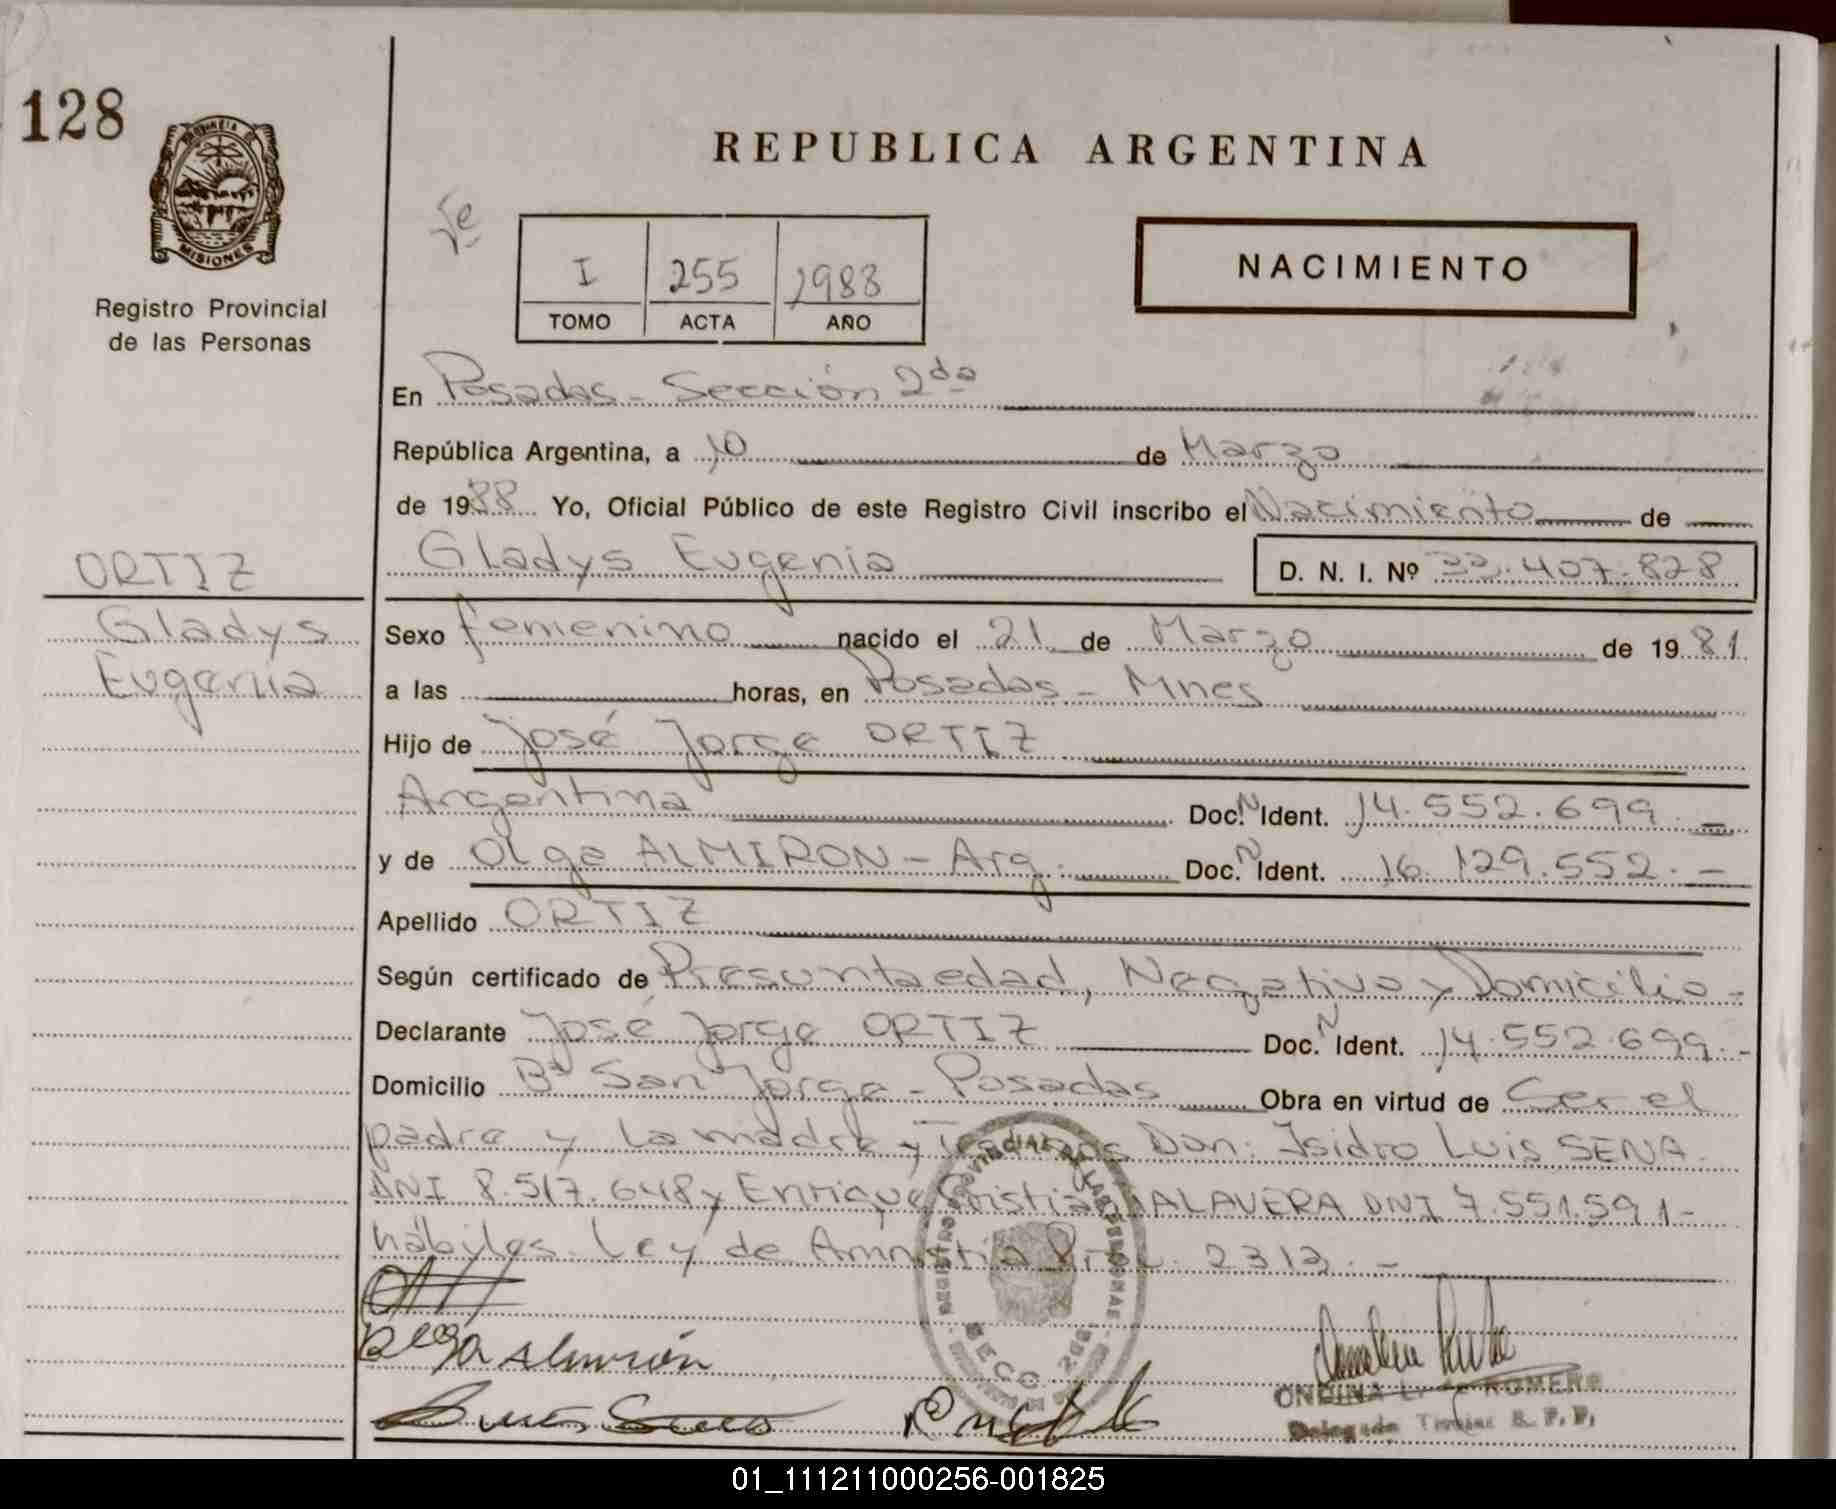 128
REPUBLICA ARGENTINA
MISIONES
Registro Provincial
de las Personas
I 255 1988
TOMO ACTA AÑO
NACIMIENTO
En Posadas - Sección 2da
República Argentina, a 10 de Marzo
de 1988 Yo, Oficial Público de este Registro Civil inscribo el Nacimiento de
Gladys Eugenia D. N. I. Nº 33.407.828
ORTIZ
Gladys
Eugenia
Sexo femenino nacido el 21 de Marzo de 1981
a las horas, en Posadas - Mnes
Hijo de José Jorge ORTIZ
Argentina Doc. N Ident. 14.552.699.-
y de Olga ALMIRON - Arg. Doc. N Ident. 16.129.552.-
Apellido ORTIZ
Según certificado de Presunta edad, Negativo y Domicilio-
Declarante José Jorge ORTIZ Doc. N Ident. 14.552.699.-
Domicilio Bº San Jorge - Posadas Obra en virtud de Ser el
padre y la madre y Testigos Don: Isidro Luis SENA
DNI 8.517.648 y Enrique Cristian ALAVERA DNI 7.551.591-
hábiles. Ley de Amnistía Prov. 2313.-
Olga Almirón
ONDINA L. ROMERO
Delegada S. P. P.
01_111211000256-001825